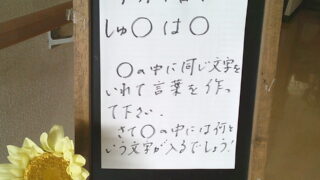 しゅ○は○
○の中に同じ文字を
いれて言葉を作っ
て下さい.
さて○の中には何と
いう文字が入るでしょう!